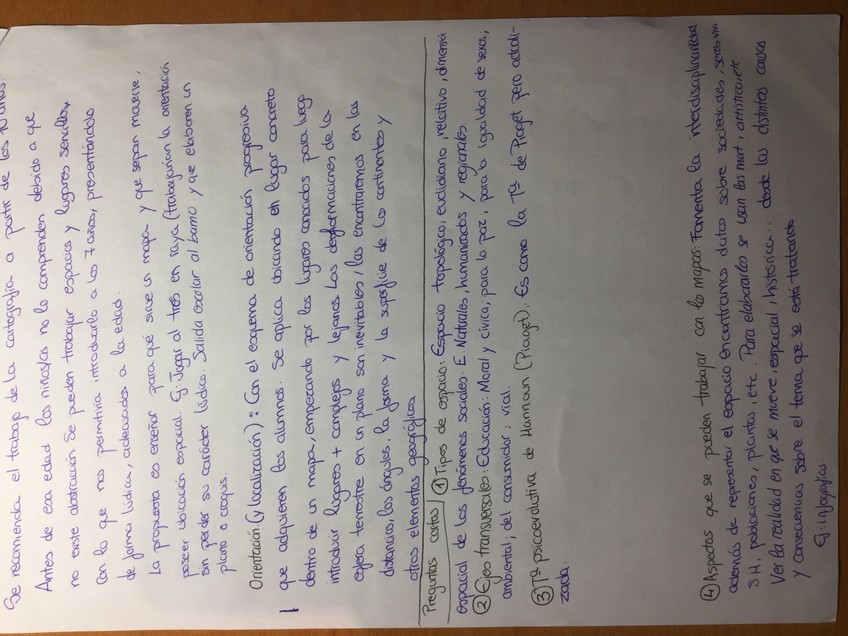 Se recomienda el trabajo de la cartografía a partir de los 10 años.
Antes de esa edad los niños/as no lo comprenden debido a que
no existe abstracción. Se pueden trabajar espacios y lugares sencillos,
con lo que nos permitiría introducirlo a los 7 años, presentándolo
de forma lúdica, adecuados a la edad.
La propuesta es enseñar para qué sirve un mapa y que sepan moverse,
poseer ubicación espacial. Ej: Jugar al tres en raya (trabajarían la orientación
sin perder su carácter lúdico. Salida escolar al barrio y que elaboren un
plano o croquis.
Orientación (y localización): Con el esquema de orientación progresiva
que adquieren los alumnos. Se aplica ubicando en lugar concreto
dentro de un mapa, empezando por los lugares conocidos para luego
introducir lugares + complejos y lejanos. Las deformaciones de la
esfera terrestre en un plano son inevitables, las encontraremos en las
distancias, los ángulos, la forma y la superficie de los continentes y
otros elementos geográficos.
Preguntas cortas ① Tipos de espacio: Espacio topológico, euclidiano, relativo, dimensión
espacial de los fenómenos sociales. E. Naturales, humanizados y regionales.
② Ejes transversales: Educación: Moral y cívica, para la paz, para la igualdad de sexos,
ambiental, del consumidor, vial.
③ Tª psicoevolutiva de Hannoun (Piaget). Es como la Tª de Piaget pero actuali-
zada.
④ Aspectos que se pueden trabajar con los mapas: Fomenta la interdisciplinariedad
además de representar el espacio encontramos datos sobre sociedades, seres vivos
S.H, poblaciones, plantas, etc. Para elaborarlos se usan las mat, artística, etc.
Ver la realidad en que se mueve, espacial, histórica... desde las distintas causas
y consecuencias sobre el tema que se está tratando
Ej: infografías.